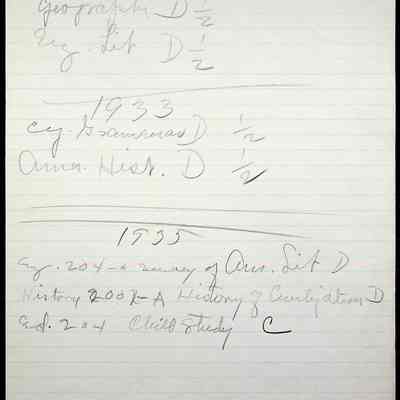 Geography D 1/2
Eng. Lit D 1/2
1933
Eng. Grammar D 1/2
Amer. Hist. D 1/2
1935
Eng. 204-a survey of Am. Lit D
History 200 -A History of Civilization D
Ed. 204 Child Study C